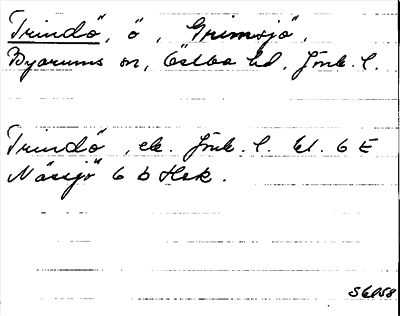 Trindö, ö, Grimsjö,
Byarums sn, Östbo hd, Jönk. l.
Trindö, ek. Jönk. l. bl. 6 E
Nässjö 6 b Hsk.
S6958